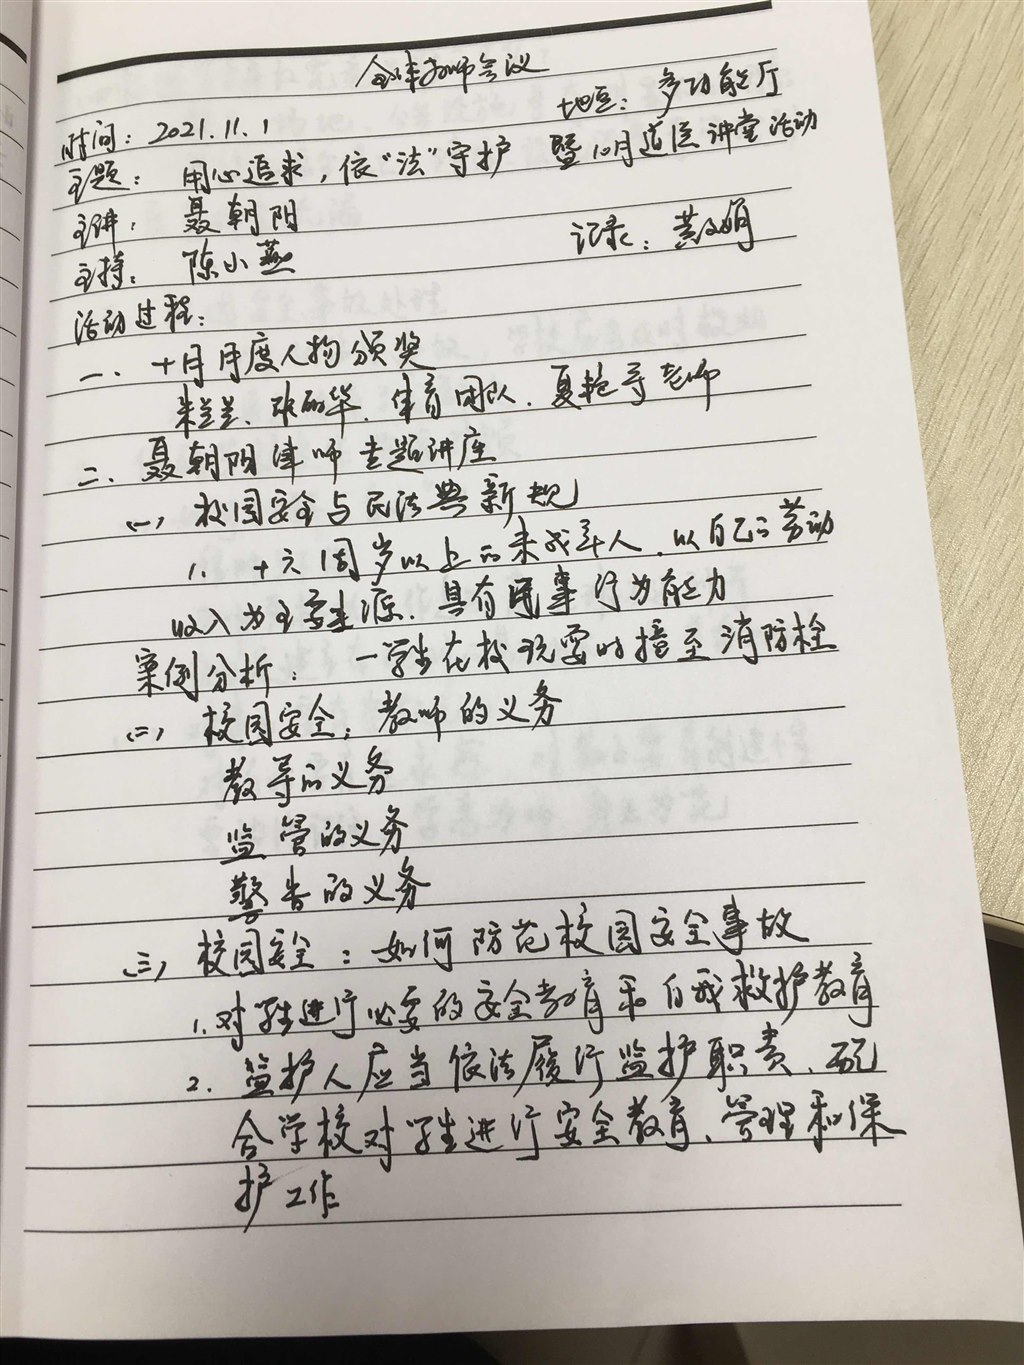 全体教师会议
时间：2021.11.1 地点：多功能厅
主题：用心追求，依“法”守护 暨10月道德讲堂活动
主讲：聂朝阴
主持：陈小燕 记录：黄文娟
活动过程：
一、十月月度人物颁奖
朱兰兰、华、体育团队、夏艳芳老师
二、聂朝阴律师专题讲座
(一) 校园安全与民法典新规
1. 十六周岁以上的未成年人，以自己的劳动
收入为主要来源，具有民事行为能力
案例分析：一学生在校玩耍时撞至消防栓
(二) 校园安全：教师的义务
教导的义务
监管的义务
警告的义务
(三) 校园安全：如何防范校园安全事故
1. 对学生进行必要的安全教育和自我救护教育
2. 监护人应当依法履行监护职责，配
合学校对学生进行安全教育、管理和保
护工作